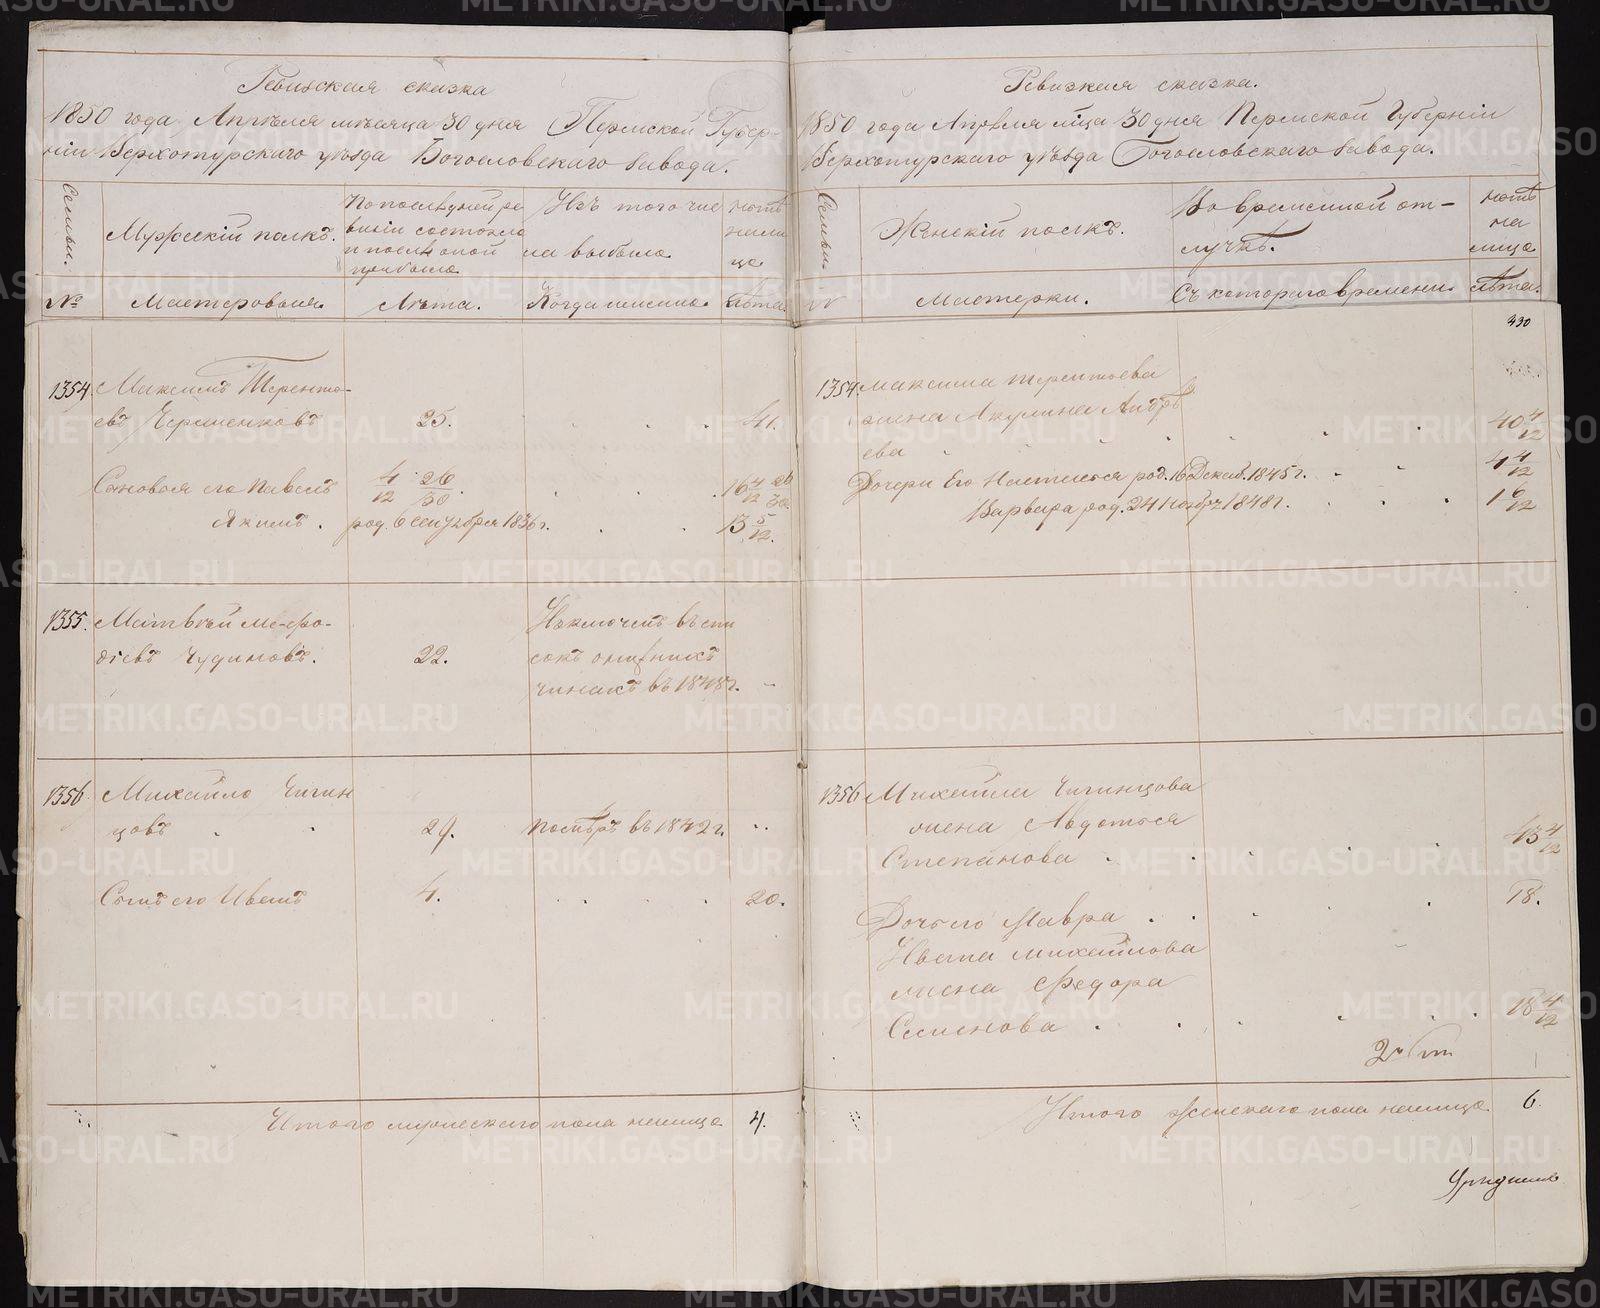 Ревизская сказка
1850 года Апреля месяца 30 дня Пермской Губер-
нiи Верхотурскаго уѣзда Богословскаго завода.
Семьи.
Мужескiй полъ.
По последней ре
визiи состояло
и после оной
прибыло
Изъ того чис
ла выбыло
нынѣ
на ли
це
№
Мастеровыя.
Лѣта.
Когда именно.
Лѣта
1354. Максимъ Теренть-
евъ Черменковъ 25. 41.
Сыновья его Павелъ 4/12 26/30. 16 4/12 26/30
Якимъ. род. 6 сентября 1836 г. 13 5/12.
1355. Матвѣй Мефо-
дiевъ Чудиновъ. 22.
въ 1848 г. -
1356. Михайло Чигин
цовъ 29. помѣръ въ 1842 г.
Сынъ его Иванъ 4. 20.
Итого мужескаго пола налицо 4.
Ревизская сказка.
1850 года Апрѣля мца 30 дня Пермской Губернiи
Верхотурскаго уѣзда Богословскаго завода.
Семьи.
Женскiй полъ.
Во временной от-
лучкѣ.
нынѣ
на
лице
№
Мастерки.
Съ котораго времени.
Лѣта.
430
1354. Максима Терентьева
жена Акулина Андрѣ
ева 40 4/12
Дочери Его Настасья род. 16 Декаб. 1845 г. 4 4/12
Варвара род. 24 Ноябр 1848 г. 1 6/12
1356 Михайла Чигинцова
жена Авдотья
Степанова 43 4/12
Дочь его Мавра 18.
Ивана Михайлова
жена Федора
Семенова 18 4/12
Итого женскаго пола налицо 6.
METRIKI.GASO-URAL.RU